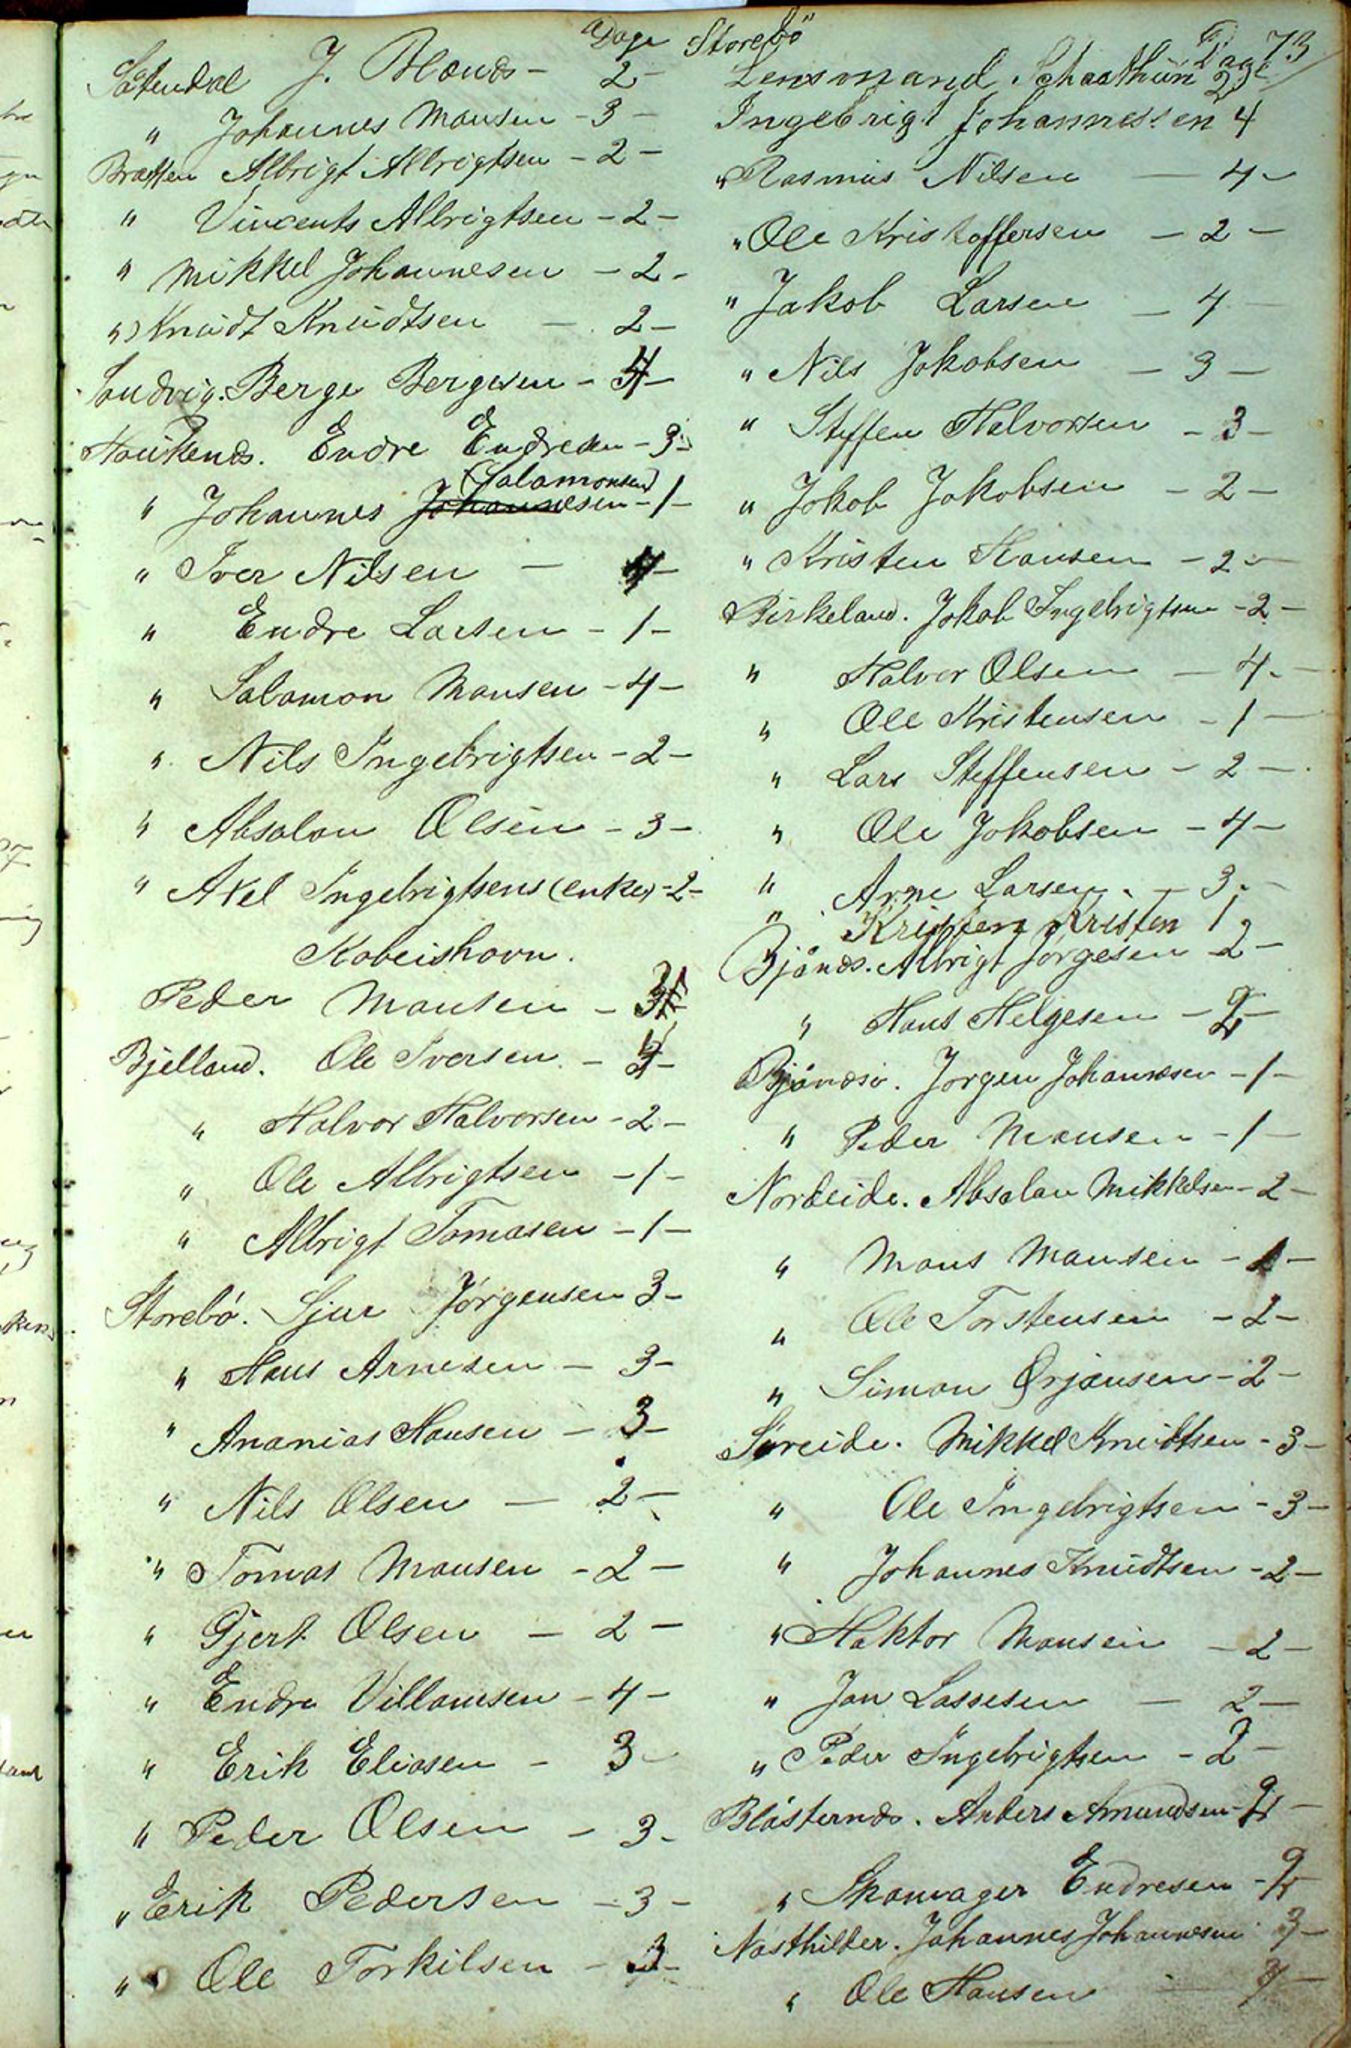 Dage
J. Blænds - 2 -
" Johannes Mansen - 3 -
Bratten Albrigt Albrigtsen - 2 -
" Vincents Albrigtsen - 2 -
" Mikkel Johannesen - 2 -
" Knudt Knudtsen - 2 -
Ludvig. Berge Bergesen - 4 -
Haukenes. Endre Endresen - 3 -
(Salamonsen)
" Johannes Johannesen - 1 -
" Iver Nilsen - 4 -
" Endre Larsen - 1 -
" Salamon Mansen - 4 -
" Nils Ingebrigtsen - 2 -
" Absalon Olsen - 3 -
" Axel Ingebrigtsens (enke) - 2 -
Kobeishavn.
Peder Mansen - 3
Bjelland. Ole Iversen. -
" Halvor Halvorsen - 2 -
" Ole Albrigtsen - 1 -
" Albrigt Tomasen - 1 -
Storebö. Sjur Jörgensen 3 -
" Hans Arnesen - 3 -
" Ananias Hansen - 3 -
" Nils Olsen - 2 -
" Tomas Mansen - 2 -
" Gjert Olsen - 2 -
" Endre Villamsen - 4 -
" Erik Eliasen - 3 -
" Peder Olsen - 3 -
" Erik Pedersen - 3 -
" Ole Torkilsen - 3 -
Storebö Dage 73
Lensmand Schaathun 2
Ingebrigt Johannessen 4
" Rasmus Nilsen - 4 -
" Ole Kristoffersen - 2 -
" Jakob Larsen - 4 -
" Nils Jakobsen - 3 -
" Steffen Halvorsen - 3 -
" Jakob Jakobsen - 2 -
" Kristen Hansen - 2 -
Birkeland. Jakob Ingebrigtsen - 2 -
" Halvor Olsen - 4 -
" Ole Kristensen - 1 -
" Lars Steffensen - 2 -
" Ole Jakobsen - 4 -
" Arne Larsen. - 3 -
" Kristen Kristen 1
Bjånes. Albrigt Jørgesen 2 -
" Hans Helgesen - 2 -
Bjånesö. Jørgen Johannesen - 1 -
" Peder Mansen - 1 -
Nordeide. Absalon Mikkelsen - 2 -
" Mons Mansen - 1 -
" Ole Torstensen - 2 -
" Simon Ørjansen - 2 -
Søreide. Mikkel Knudtsen - 3 -
" Ole Ingebrigtsen - 3 -
" Johannes Knudtsen - 2 -
" Haktor Mansen - 2 -
" Jan Lassesen - 2 -
" Peder Ingebrigtsen - 2 -
Blåsternes. Anders Amundsen - 2 -
" Endresen - 2 -
Johannes Johannesen 3 -
" Ole Hansen - 3 -